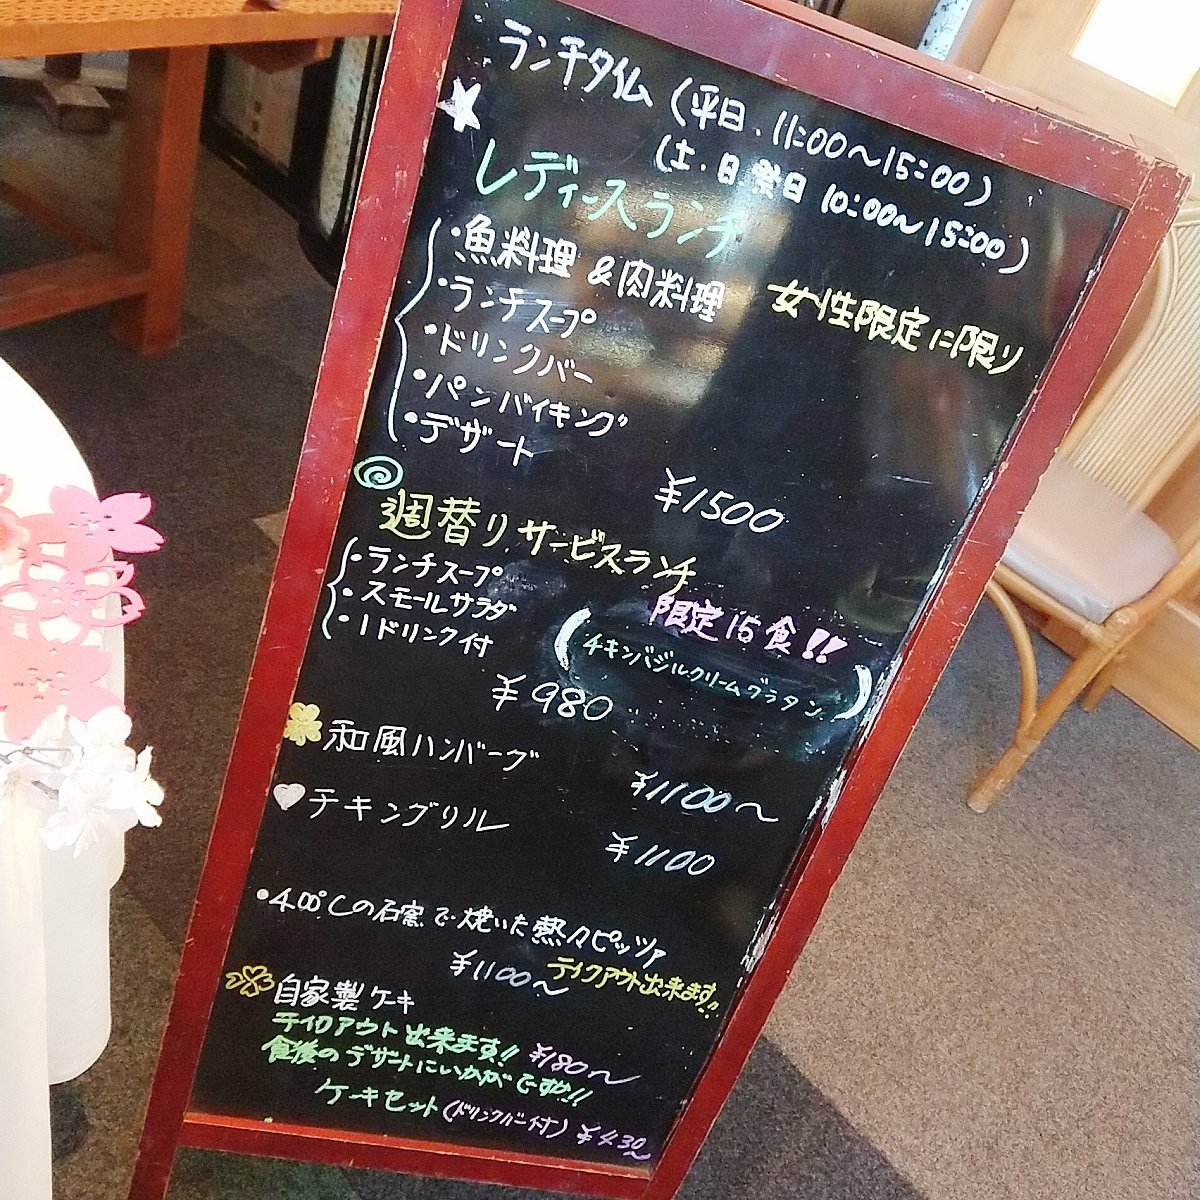 ランチタイム (平日、11:00〜15:00)
(土・日祭日 10:00〜15:00)
レディースランチ
・魚料理 & 肉料理
女性限定に限り
・ランチスープ
・ドリンクバー
・パンバイキング
・デザート
¥1500
週替りサービスランチ
・ランチスープ
限定15食!!
・スモールサラダ
(チキンバジルクリームグラタン)
・1ドリンク付
¥980
和風ハンバーグ
¥1100〜
チキングリル
¥1100
・400℃の石窯で焼いた熱々ピッツァ
¥1100〜 テイクアウト出来ます!!
自家製ケーキ
テイクアウト出来ます!! ¥180〜
食後のデザートにいかがですか!!
ケーキセット(ドリンクバー付) ¥430〜